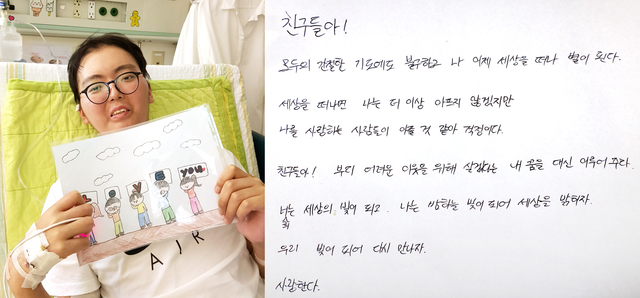 YOU
AIR
친구들아!
모두의 간절한 기도에도 불구하고 나 이제 세상을 떠나 별이 된다.
세상을 떠나면 나는 더 이상 아프지 않겠지만
나를 사랑하는 사람들이 아플 것 같아 걱정이다.
친구들아! 부디 어려운 이웃을 위해 살겠다는 내 꿈을 대신 이루어주라.
너는 세상의 빛이 되고 나는 밤하늘 빛이 되어 세상을 밝히자.
우리 빛이 되어 다시 만나자.
사랑한다.